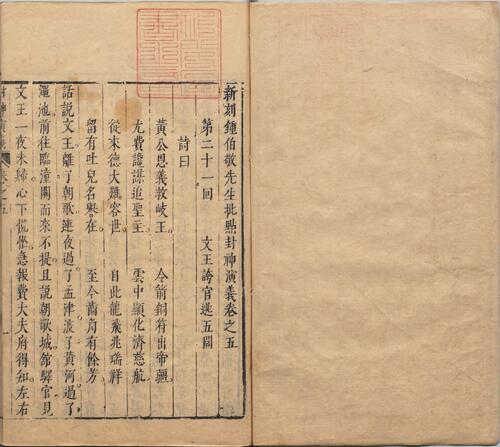 新刻鍾伯敬先生批點封神演義卷之五
第二十一回　文王誇官逃五關
詩曰
黃公恩義救岐王　令箭銅符出帝疆
尤費讒謀追聖主　雲中顯化濟慈航
從來德大難容世　自此龍飛兆瑞祥
留有吐兒名譽在　至今齒角有餘芳
話說文王離了朝歌連夜過了孟津渡了黃河過了
澠池前往臨潼關而來不提且說朝歌城館驛官見
文王一夜未歸心下慌張急報費大夫府得知左右